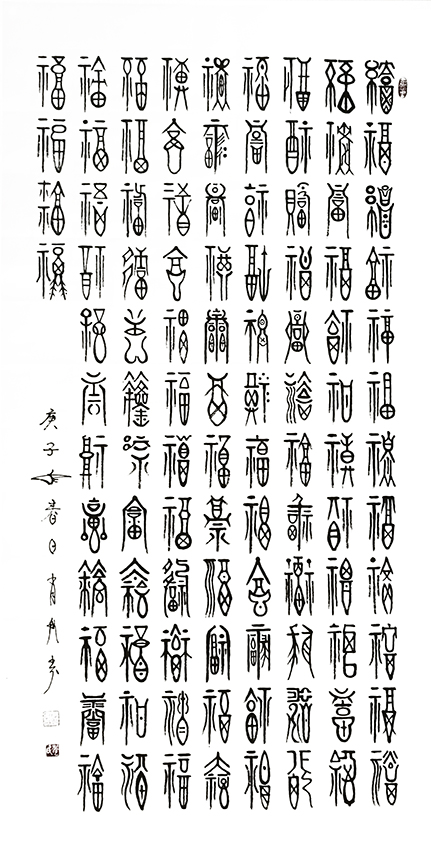 福福福福福福福福福福福福
福福福福福福福福福福福福
福福福福福福福福福福福福
福福福福福福福福福福福福
福福福福福福福福福福福福
福福福福福福福福福福福福
福福福福福福福福福福福福
福福福福福福福福福福福福
福福福福
庚子年春日肖